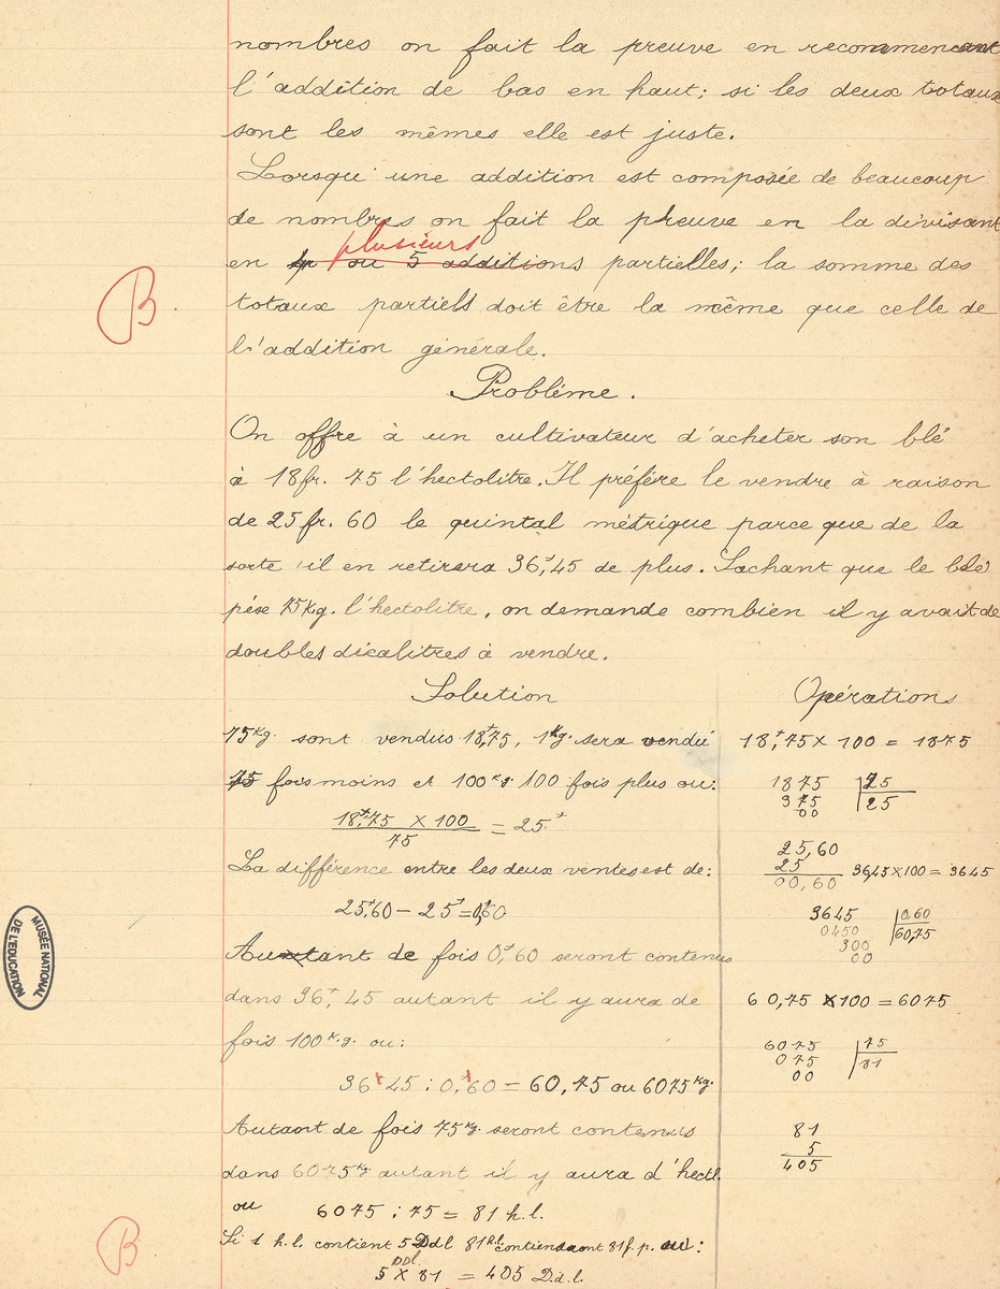 nombres on fait la preuve en recommencant
l'addition de bas en haut; si les deux totaux
sont les mêmes elle est juste.
Lorsqu'une addition est composée de beaucoup
de nombres on fait la preuve en la divisant
plusieurs
en 4 ou 5 additions partielles; la somme des
totaux partiels doit être la même que celle de
l'addition générale.
B.
Problème.
On offre à un cultivateur d'acheter son blé
à 18fr. 75 l'hectolitre. Il préfère le vendre à raison
de 25 fr. 60 le quintal métrique parce que de la
sorte il en retirera 36f,45 de plus. Sachant que le blé
pèse 75Kg. l'hectolitre, on demande combien il y avait de
doubles décalitres à vendre.
Solution
75Kg. sont vendus 18f,75, 1Kg. sera vendu
75 fois moins et 100Kg. 100 fois plus ou:
18f,75 × 100 / 75 = 25f
La différence entre les deux ventes est de:
25f,60 - 25f = 0f,60
Autant de fois 0f,60 seront contenus
dans 36f,45 autant il y aura de
fois 100K.g. ou:
36f45 : 0,f60 = 60,75 ou 6075Kg.
Autant de fois 75Kg. seront contenus
dans 6075Kg autant il y aura d'hectl.
ou 6075 : 75 = 81 h.l.
Si 1 h.l. contient 5 Ddl 81h.l. contiendront 81 f. p. ou:
5 Ddl × 81 = 405 D.d.l.
B
Opérations
18f,75 × 100 = 1875
1875 | 75
375 | 25
00
25,60
25
00,60
36,45 × 100 = 3645
3645 | 0,60
0450 | 60,75
300
00
60,75 × 100 = 6075
6075 | 75
075 | 81
00
81
5
405
MUSÉE NATIONAL
DE L'ÉDUCATION